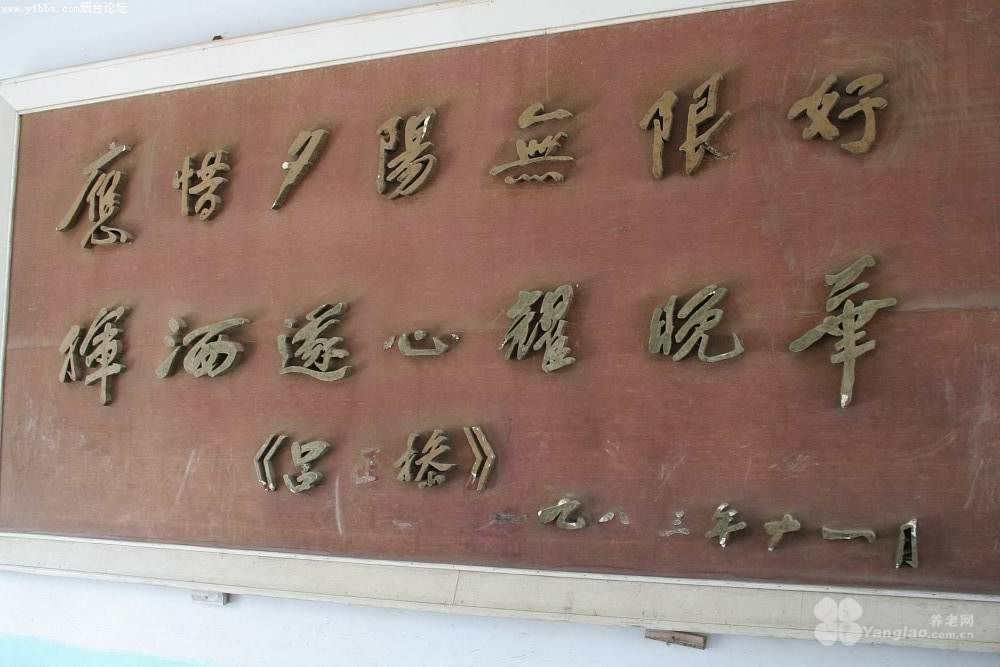 www.ytbbs.com烟台论坛
應惜夕陽無限好
揮洒遂心耀晚華
《呂正操》
一九八三年十一月
养老网
Yanglao.com.cn